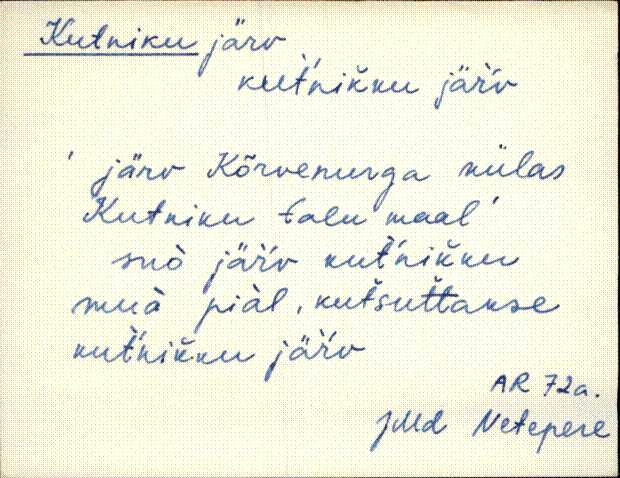 Kutniku järv
kut̀'nik̆ku jär̀'v
' järv Kõrvenurga külas
Kutniku talu maal'
suò jär̀'v kut̀'nik̆ku
muà piàl, kut̆sut̆takse
kut̀'nik̆ku jär̀'v
AR 72a.
JMd Netepere